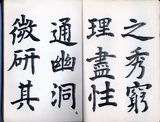 之秀窮
理盡性
通幽洞
微研其